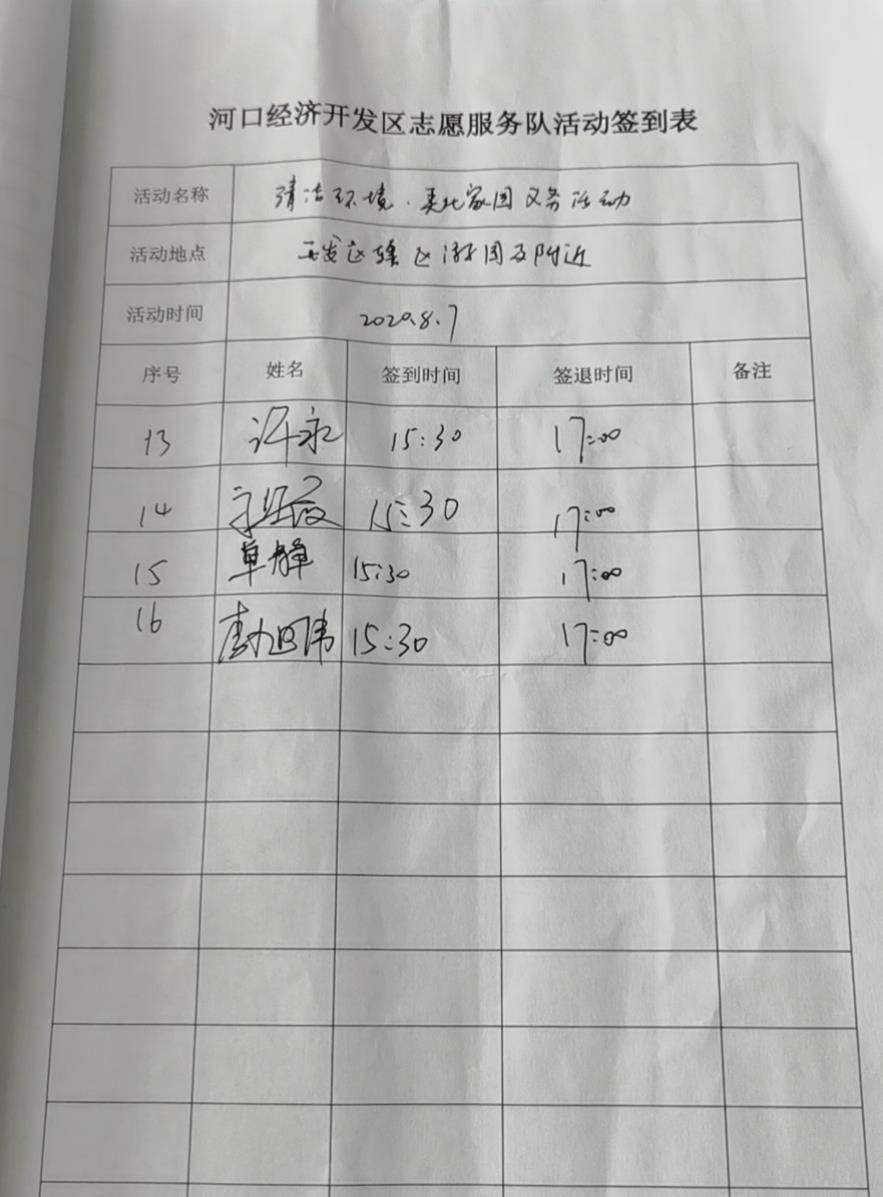 河口经济开发区志愿服务队活动签到表
活动名称 清洁环境·美化家园义务活动
活动地点 开发区 区游园及附近
活动时间 2020.8.7
序号 姓名 签到时间 签退时间 备注
13 许永 15:30 17:00
14 15:30 17:00
15 单静 15:30 17:00
16 15:30 17:00